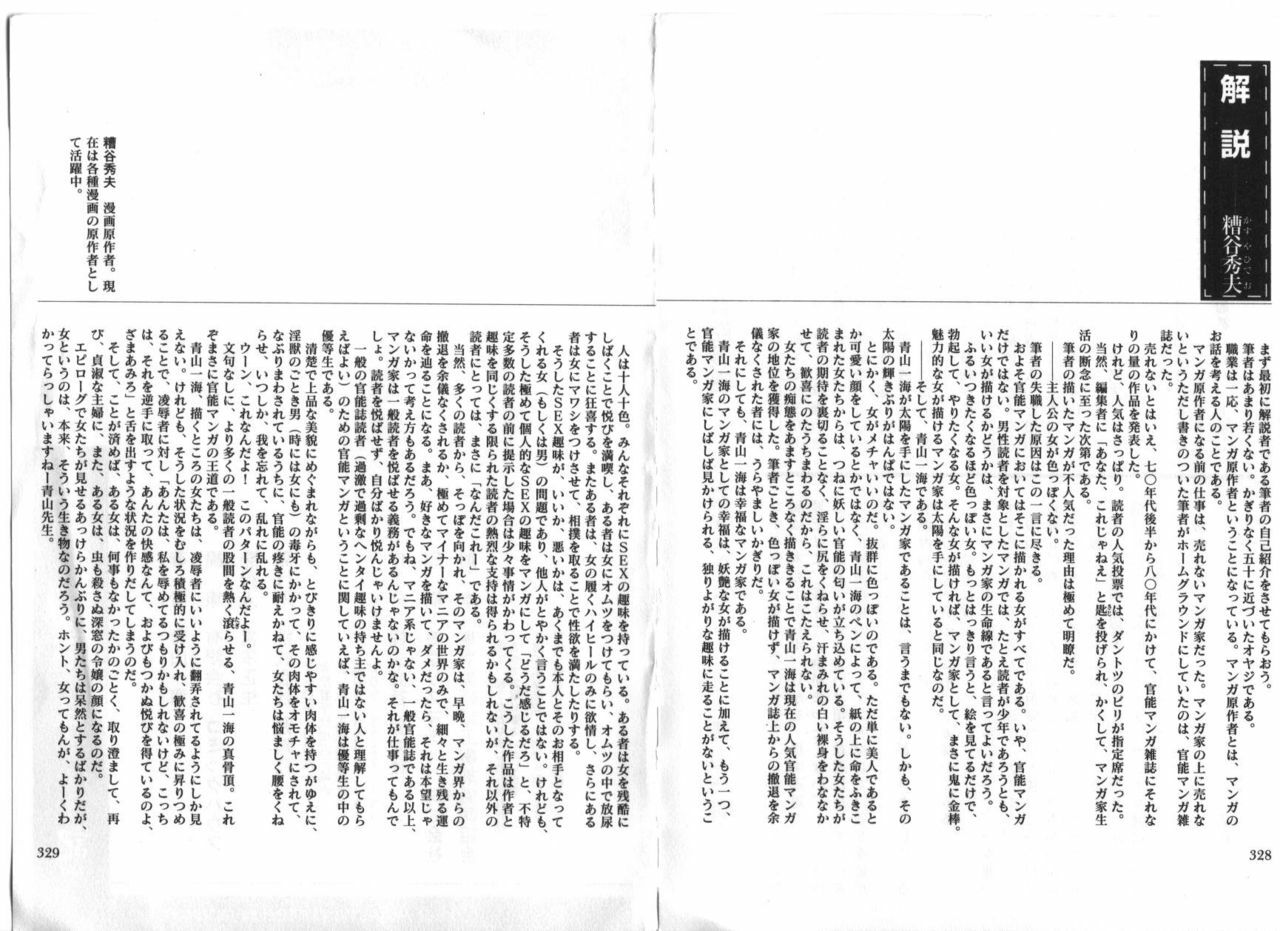 解説
糟谷秀夫
かすやひでお
まず最初に解説者である筆者の自己紹介をさせてもらおう。
筆者はあまり若くない。かぎりなく五十に近づいたオヤジである。
職業は一応、マンガ原作者ということになっている。マンガ原作者とは、マンガの
お話を考える人のことである。
マンガ原作者になる前の仕事は、売れないマンガ家だった。マンガ家の上に売れな
いというただし書きのついた筆者がホームグラウンドにしていたのは、官能マンガ雑
誌だった。
売れないとはいえ、七〇年代後半から八〇年代にかけて、官能マンガ雑誌にそれな
りの量の作品を発表した。
けれど、人気はさっぱり。読者の人気投票では、ダントツのビリが指定席だった。
当然、編集者に「あなた、これじゃねえ」と匙を投げられ、かくして、マンガ家生
活の断念に至った次第である。
筆者の描いたマンガが不人気だった理由は極めて明瞭だ。
――主人公の女が色っぽくない。
筆者の失職した原因はこの一言に尽きる。
およそ官能マンガにおいてはそこに描かれる女がすべてである。いや、官能マンガ
だけではない。男性読者を対象としたマンガでは、たとえ読者が少年であろうとも、
いい女が描けるかどうかは、まさにマンガ家の生命線であると言ってよいだろう。
ふるいつきたくなるほど色っぽい女。もっとはっきり言うと、絵を見てるだけで、
勃起して、やりたくなる女。そんな女が描ければ、マンガ家として、まさに鬼に金棒。
魅力的な女が描けるマンガ家は太陽を手にしていると同じなのだ。
――そして、青山一海である。
青山一海が太陽を手にしたマンガ家であることは、言うまでもない。しかも、その
太陽の輝きぶりがはんぱではない。
とにかく、女がメチャいいのだ。抜群に色っぽいのである。ただ単に美人であると
か可愛い顔をしているとかではなく、青山一海のペンによって、紙の上に命をふきこ
まれた女たちからは、つねに妖しい官能の匂いが立ち込めている。そうした女たちが
読者の期待を裏切ることなく、淫らに尻をくねらせ、汗まみれの白い裸身をわななか
せて、歓喜にのたうちまわるのだから、これはこたえられない。
女たちの痴態をあますところなく描ききることで青山一海は現在の人気官能マンガ
家の地位を獲得した。筆者ごとき、色っぽい女が描けず、マンガ誌上からの撤退を余
儀なくされた者には、うらやましいかぎりだ。
それにしても、青山一海は幸福なマンガ家である。
青山一海のマンガ家としての幸福は、妖艶な女が描けることに加えて、もう一つ、
官能マンガ家にしばしば見かけられる、独りよがりな趣味に走ることがないというこ
とである。
328
人は十人十色。みんなそれぞれにSEXの趣味を持っている。ある者は女を残酷に
しばくことで悦びを満喫し、ある者は女にオムツをつけてもらい、オムツの中で放尿
することに狂喜する。またある者は、女の履くハイヒールのみに欲情し、さらにある
者は女にマワシをつけさせて、相撲を取ることで性欲を満たしたりする。
そうしたSEX趣味が、いいか、悪いかは、あくまでも本人とそのお相手となって
くれる女（もしくは男）の問題であり、他人がとやかく言うことではない。けれども、
そうした極めて個人的なSEXの趣味をマンガにして「どうだ感じるだろ」と、不特
定多数の読者の前に提示した場合は少々事情がかわってくる。こうした作品は作者と
趣味を同じくする限られた読者の熱烈な支持は得られるかもしれないが、それ以外の
読者にとっては、まさに「なんだこれ！」である。
当然、多くの読者から、そっぽを向かれ、そのマンガ家は、早晩、マンガ界からの
撤退を余儀なくされるか、極めてマイナーなマニアの世界のみで、細々と生き残る運
命を辿ることになる。まあ、好きなマンガを描いて、ダメだったら、それは本望じゃ
ないかって考え方もあるだろう。でもね、マニア系じゃない、一般官能誌である以上、
マンガ家は一般読者を悦ばせる義務があるんじゃないのかな。それが仕事ってもんで
しょ。読者を悦ばせず、自分ばかり悦んじゃいけませんよ。
一般の官能誌読者（過激で過剰なヘンタイ趣味の持ち主ではない人と理解してもら
えばよい）のための官能マンガということに関していえば、青山一海は優等生の中の
優等生である。
清楚で上品な美貌にめぐまれながらも、とびきりに感じやすい肉体を持つがゆえに、
淫獣のごとき男（時には女にも）の毒牙にかかって、その肉体をオモチャにされて、
なぶりまわされているうちに、官能の疼きに耐えかねて、女たちは悩ましく腰をくね
らせ、いつしか、我を忘れて、乱れに乱れる。
ウーン、これなんだよ！　このパターーンなんだよー。
文句なしに、より多くの一般読者の股間を熱く滾らせる、青山一海の真骨頂。これ
ぞまさに官能マンガの王道である。
青山一海、描くところの女たちは、凌辱者にいいように翻弄されてるようにしか見
えない。けれども、そうした状況をむしろ積極的に受け入れ、歓喜の極みに昇りつめ
ることで、凌辱者に対し「あんたは、私を辱めてるつもりかもしれないけど、こっち
は、それを逆手に取って、あんたの快感なんて、およびもつかぬ悦びを得ているのよ、
ざまあみろ」と舌を出すような状況を作りだしてしまうのだ。
そして、ことが済めば、ある女は、何事もなかったかのごとく、取り澄まして、再
び、貞淑な主婦に、また、ある女は、虫も殺さぬ深窓の令嬢の顔になるのだ。
エピローグで女たちが見せるあっけらかんぶりに、男たちは呆然とするばかりだが、
女というのは、本来、そういう生き物なのだろう。ホント、女ってもんが、よーくわ
かってらっしゃいますねー青山先生。
糟谷秀夫　漫画原作者。現
在は各種漫画の原作者とし
て活躍中。
329